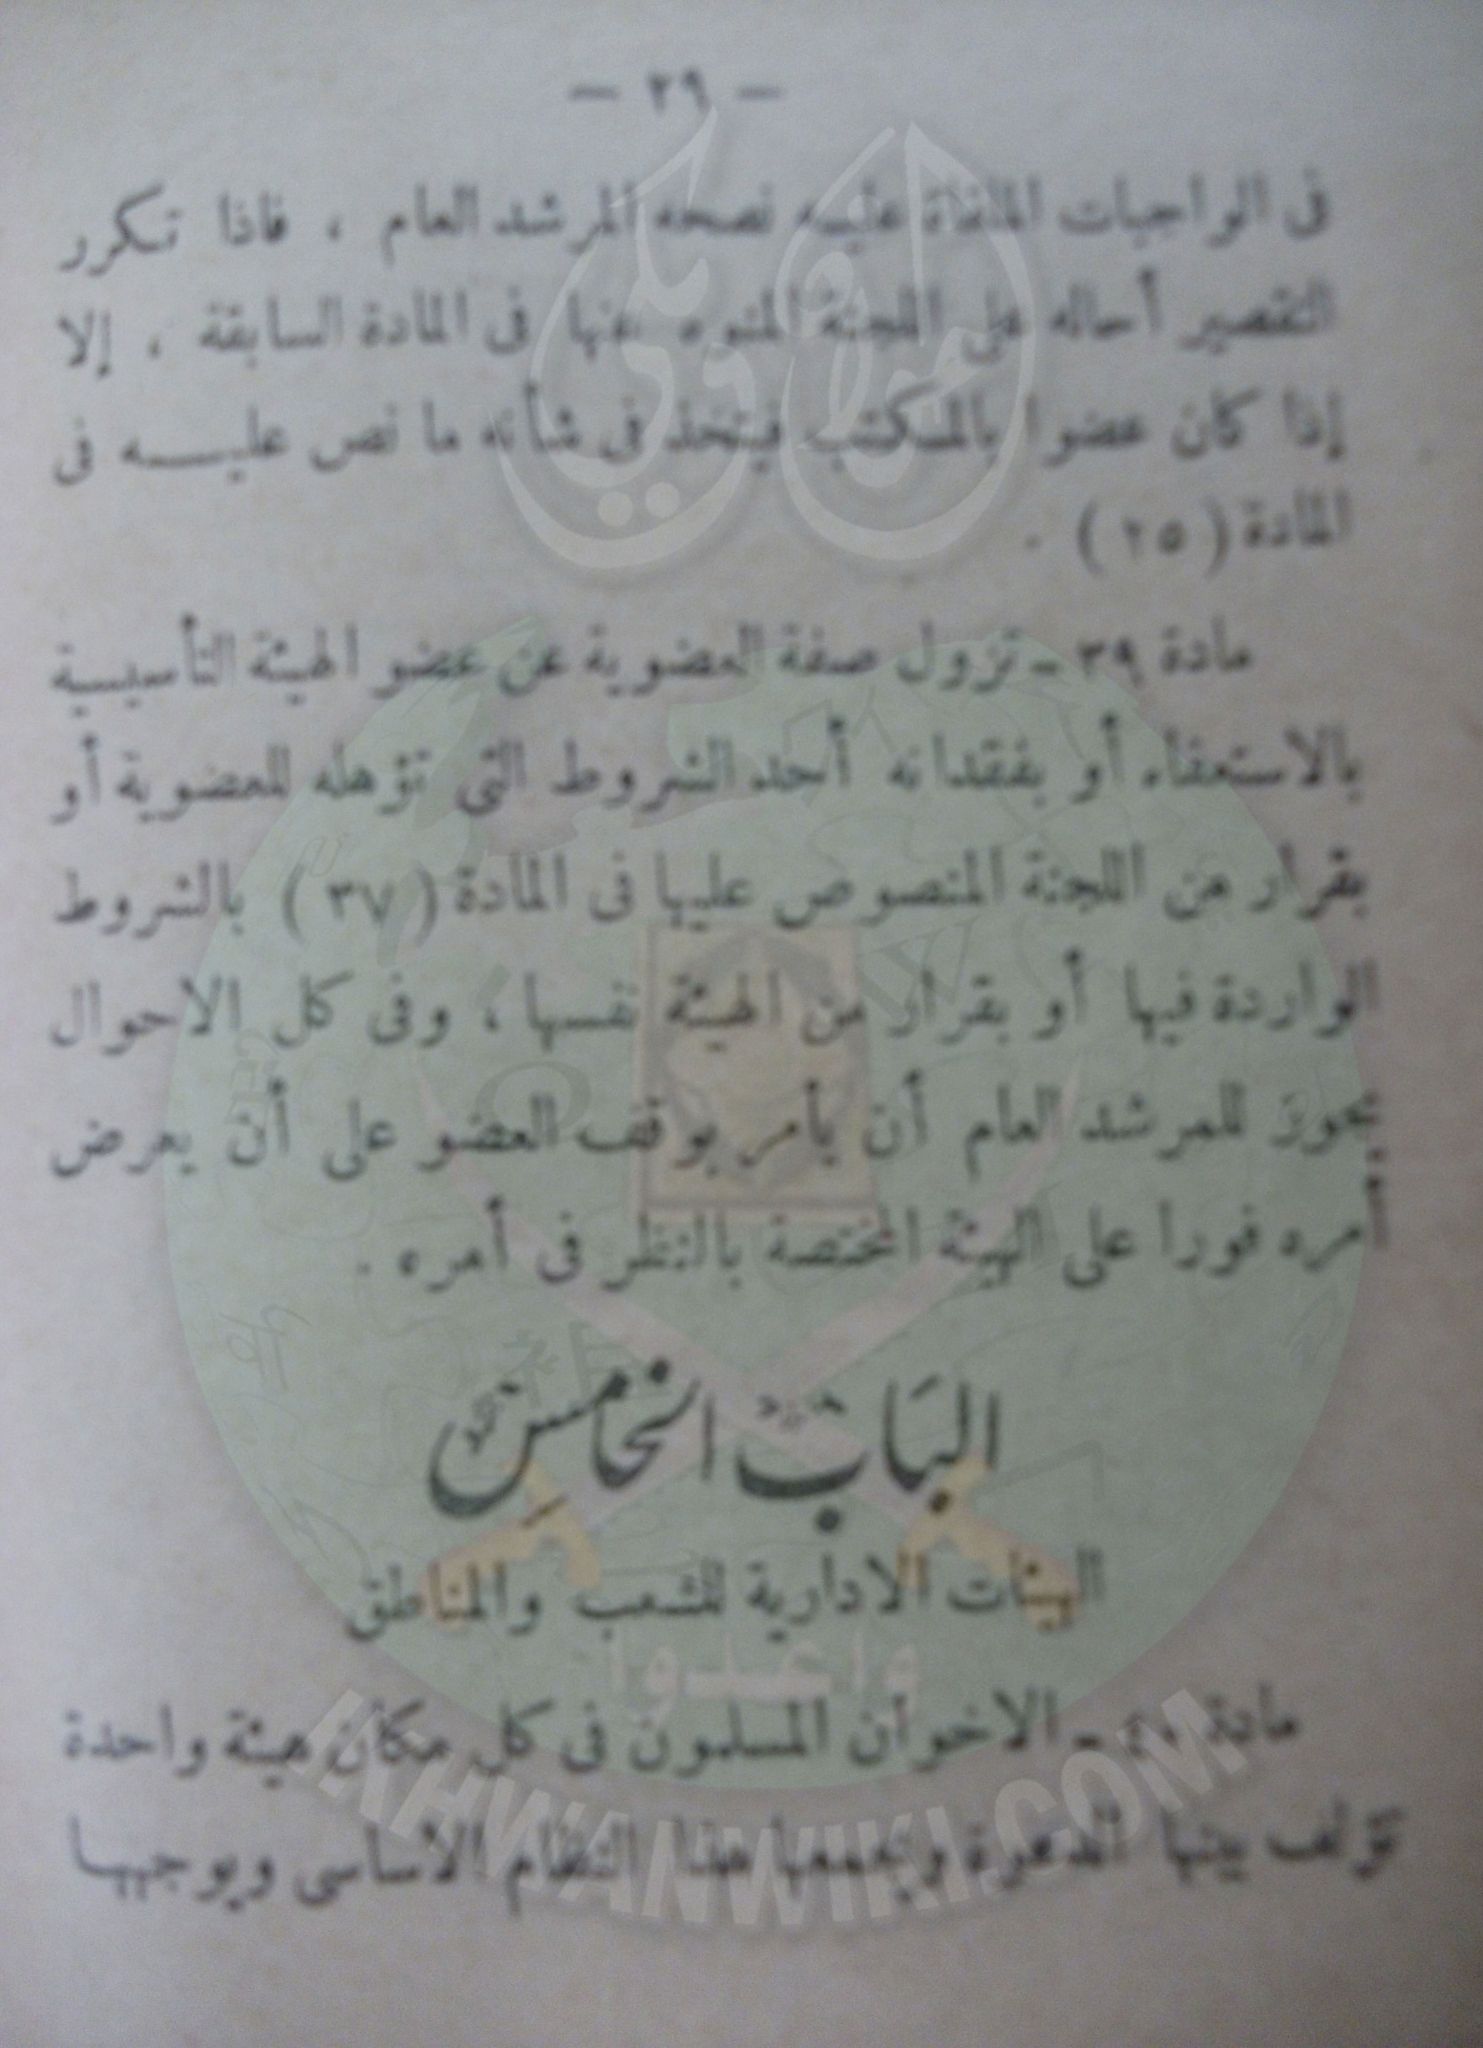 — ٢٩ —
فى الواجبات الملقاة عليه نصحه المرشد العام ، فاذا تكرر
التقصير أحاله على اللجنة المنوه عنها فى المادة السابقة ، إلا
إذا كان عضوا بالمكتب فيتخذ فى شأنه ما نص عليــه فى
المادة ( ٢٥ ) .
مادة ٣٩ - تزول صفة العضوية عن عضو الهيئة التأسيسية
بالاستعفاء أو بفقدانه أحد الشروط التى تؤهله للعضوية أو
بقرار من اللجنة المنصوص عليها فى المادة ( ٣٧ ) بالشروط
الواردة فيها أو بقرار من الهيئة نفسها ، وفى كل الاحوال
يجوز للمرشد العام أن يأمر بوقف العضو على أن يعرض
أمره فورا على الهيئة المختصة بالنظر فى أمره .
البَاب الخامس
الهيئات الادارية للشعب والمناطق
مادة ٤٠ - الاخوان المسلمون فى كل مكان هيئة واحدة
تؤلف بينها الدعوة ويجمعها هذا النظام الأساسى ويوجهها
إخوان ويكي
وأعدوا
IKHWANWIKI.COM